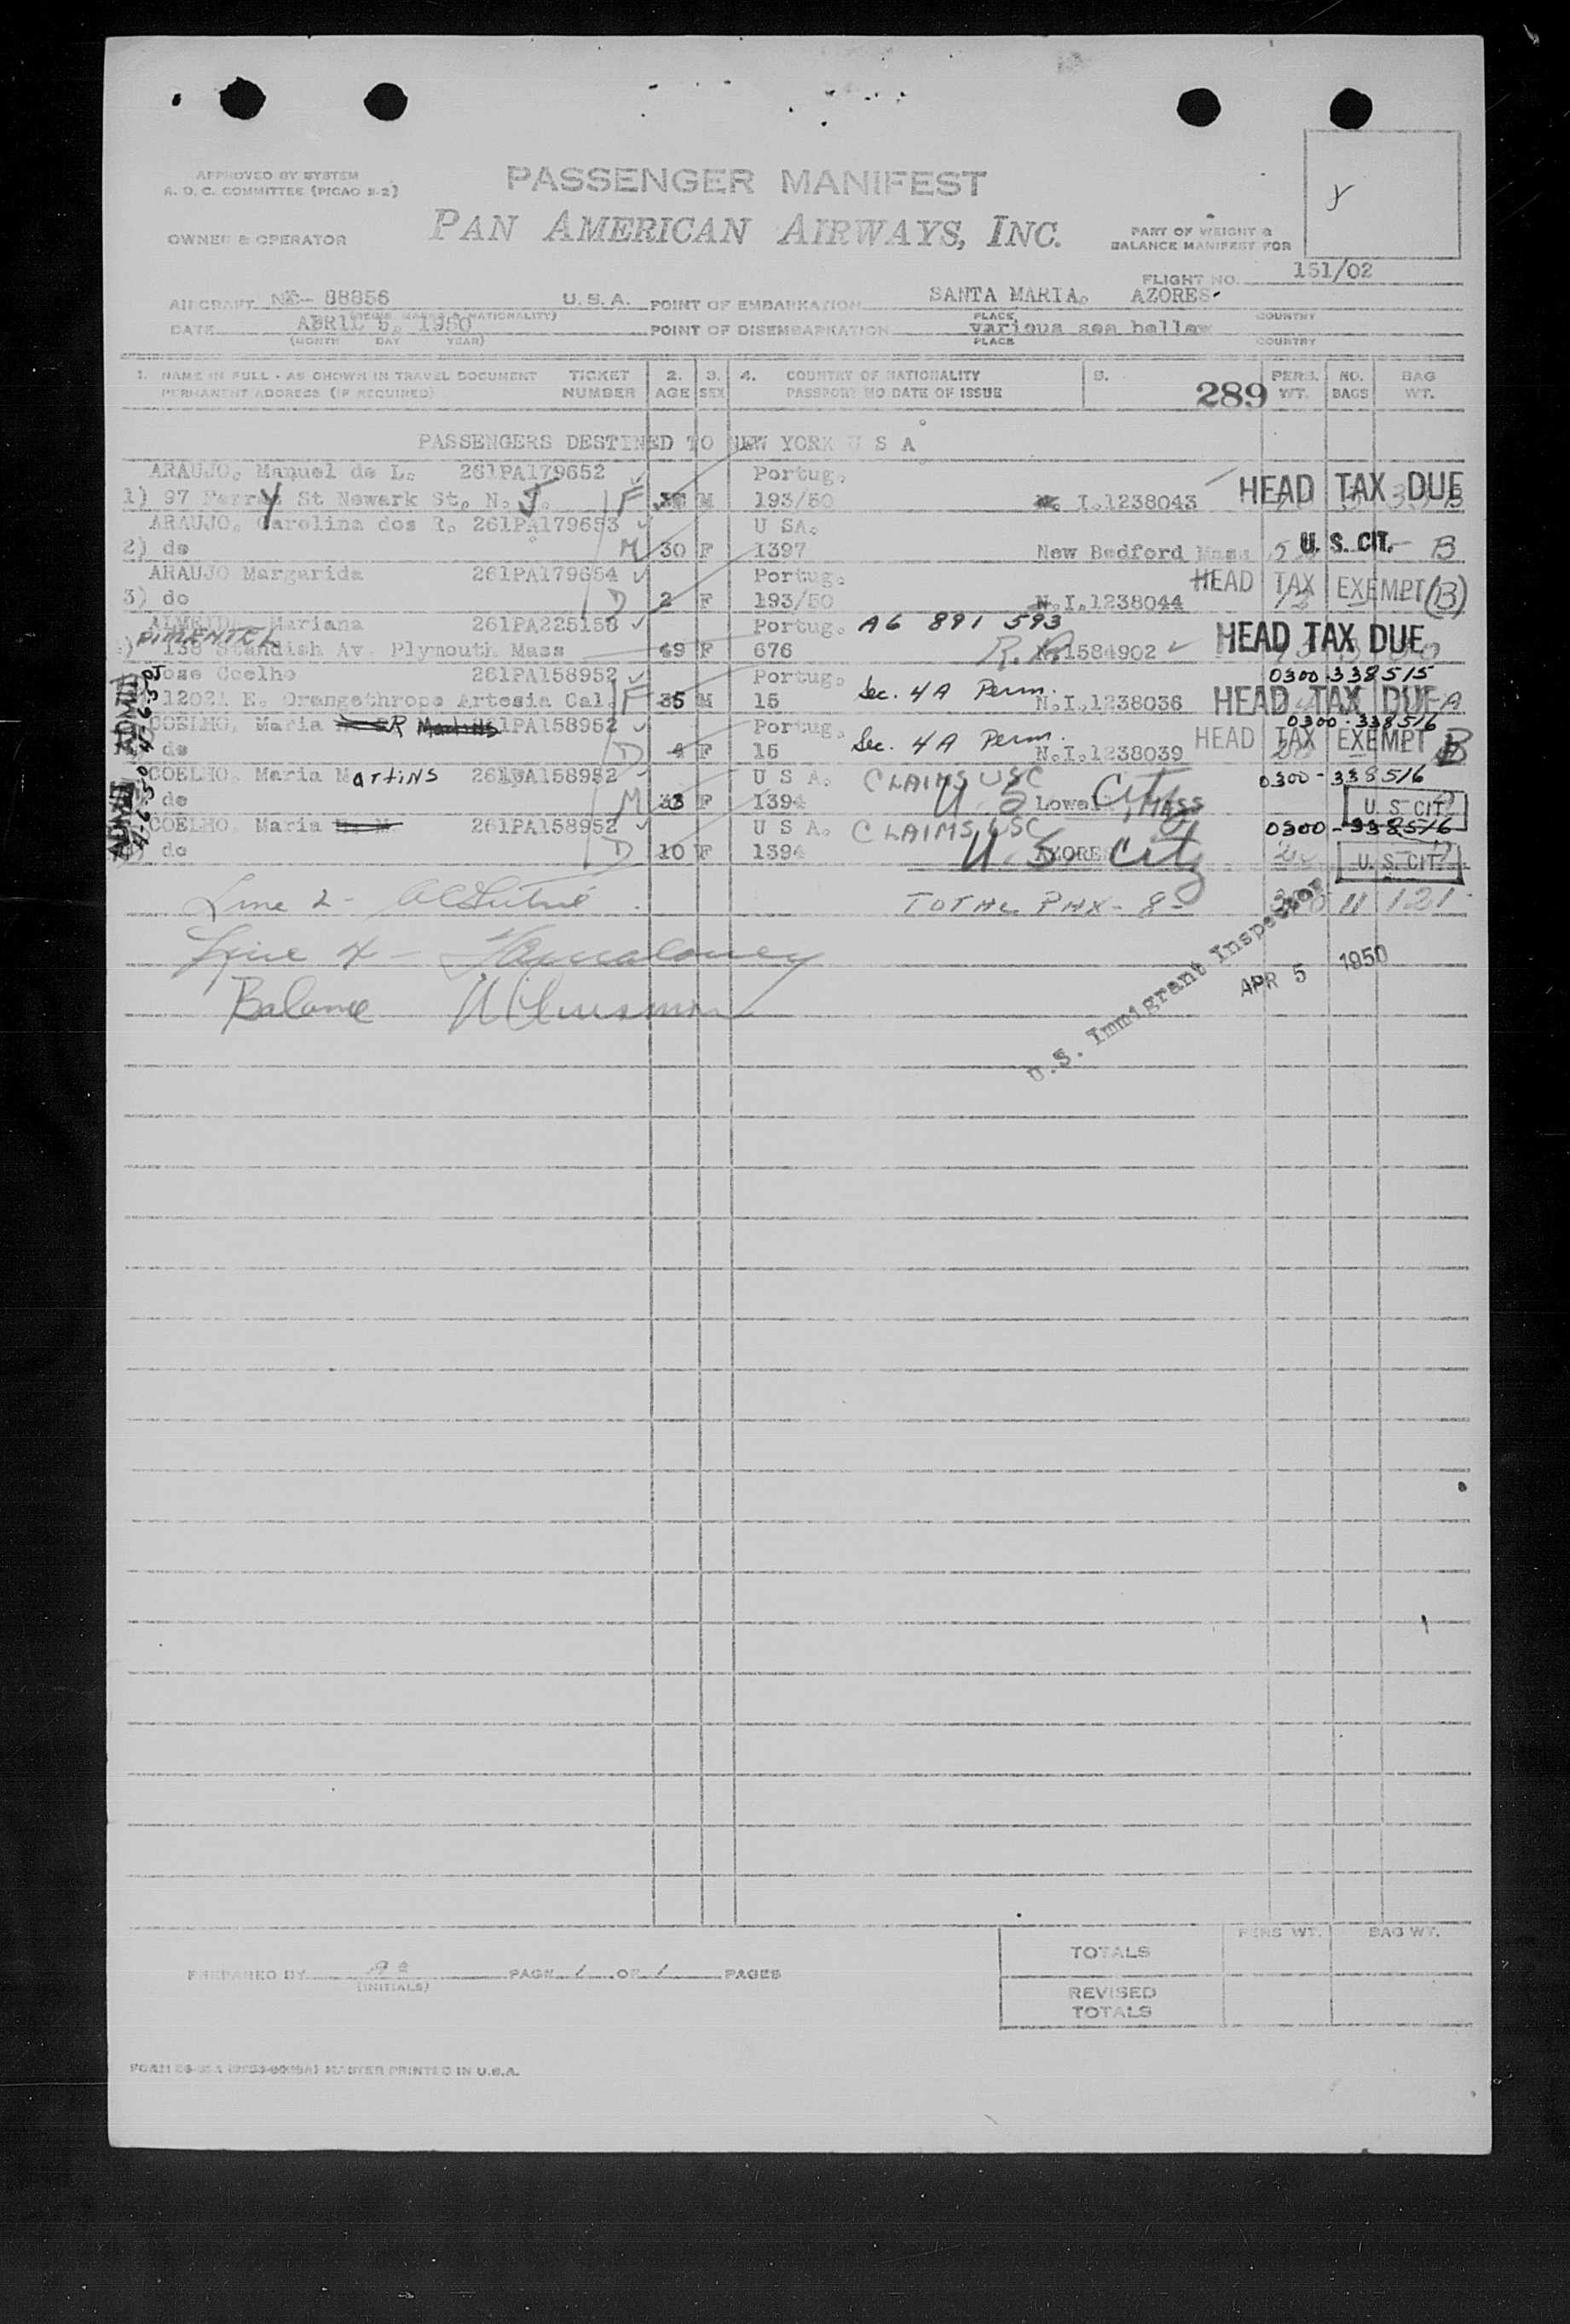 APPROVED BY SYSTEM
A. O. C. COMMITTEE (PICAO 2-2)
PASSENGER MANIFEST
PAN AMERICAN AIRWAYS, INC.
OWNER & OPERATOR
PART OF WEIGHT &
BALANCE MANIFEST FOR
FLIGHT NO. 151/02
AIRCRAFT NC- 88856 U. S. A. POINT OF EMBARKATION SANTA MARIA, AZORES.
(REGIS. MARKS & NATIONALITY) PLACE COUNTRY
DATE APRIL 5, 1950 POINT OF DISEMBARKATION various see bellow
(MONTH DAY YEAR) PLACE COUNTRY
1. NAME IN FULL - AS SHOWN IN TRAVEL DOCUMENT TICKET 2. 3. 4. COUNTRY OF NATIONALITY 5. PERS. NO. BAG
PERMANENT ADDRESS (IF REQUIRED) NUMBER AGE SEX PASSPORT NO DATE OF ISSUE 289 WT. BAGS WT.
PASSENGERS DESTINED TO NEW YORK U S A
ARAUJO, Manuel de L. 261PA179652 Portug.
1) 97 St Newark St, N. J. F M 193/50 N. I.1238043 HEAD TAX DUE
ARAUJO, Carolina dos R. 261PA179653 U SA.
2) do M 30 F 1397 New Bedford Mass U. S. CIT. B
ARAUJO Margarida 261PA179654 Portug.
3) do D 2 F 193/50 N.I.1238044 HEAD TAX EXEMPT (B)
ALMEIDA, Mariana 261PA225158 Portug. A6 891 593
PIMENTEL
138 Standish Av. Plymouth Mass 49 F 676 R.P. 1584902 HEAD TAX DUE
Jose Coelho 261PA158952 Portug. Sec. 4A Perm. 0300-338515
12021 E. Orangethrope Artesia Cal. F 35 M 15 N.I.1238036 HEAD TAX DUE A
COELHO, Maria R Martins 261PA158952 Portug. Sec. 4A Perm. 0300-338516
do D 4 F 15 N.I.1238039 HEAD TAX EXEMPT B
COELHO, Maria Martins 261PA158952 U S A. CLAIMS USC 0300-338516
do M 33 F 1394 U S Citz Lowell, MASS U. S. CIT.
COELHO, Maria 261PA158952 U S A. CLAIMS USC 0300-338516
do D 10 F 1394 AZORES U. S. Citz U. S. CIT.
ADMIT 4-6-50
ADMIT 4-6-50
Line 2 - TOTAL PAX- 8- 11 121
Line 4 -
Balance
U.S. Immigrant Inspector
APR 5 1950
TOTALS PERS WT. BAG WT.
PREPARED BY PAGE 1 OF 1 PAGES
(INITIALS)
REVISED
TOTALS
MASTER PRINTED IN U.S.A.